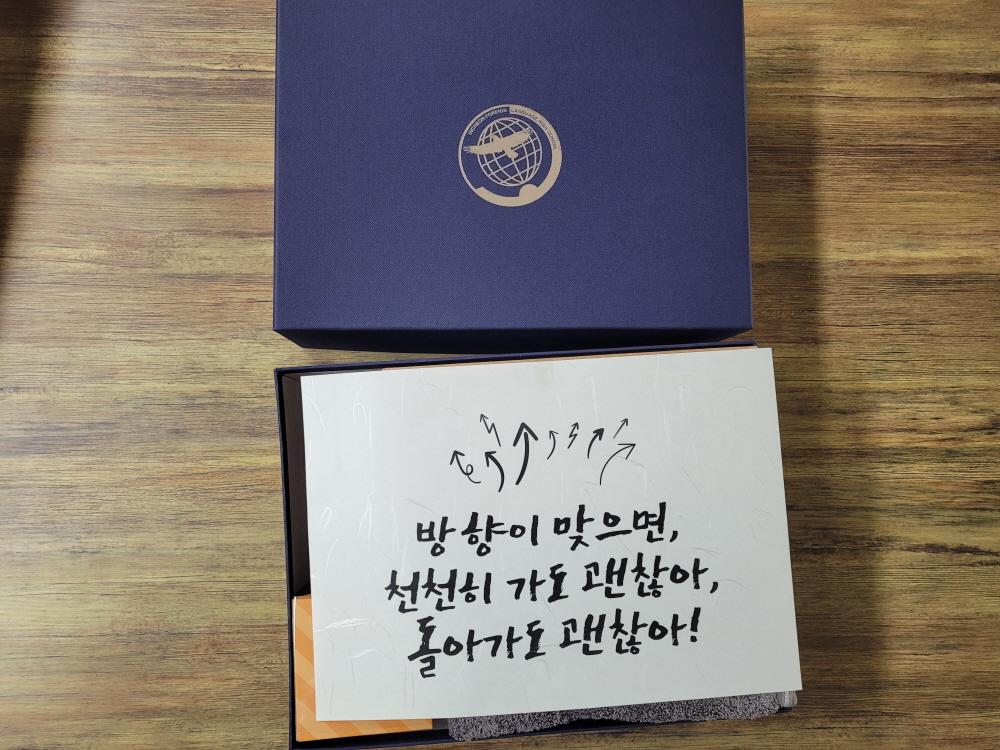 INCHEON FOREIGN LANGUAGE HIGH SCHOOL
방향이 맞으면,
천천히 가도 괜찮아,
돌아가도 괜찮아!